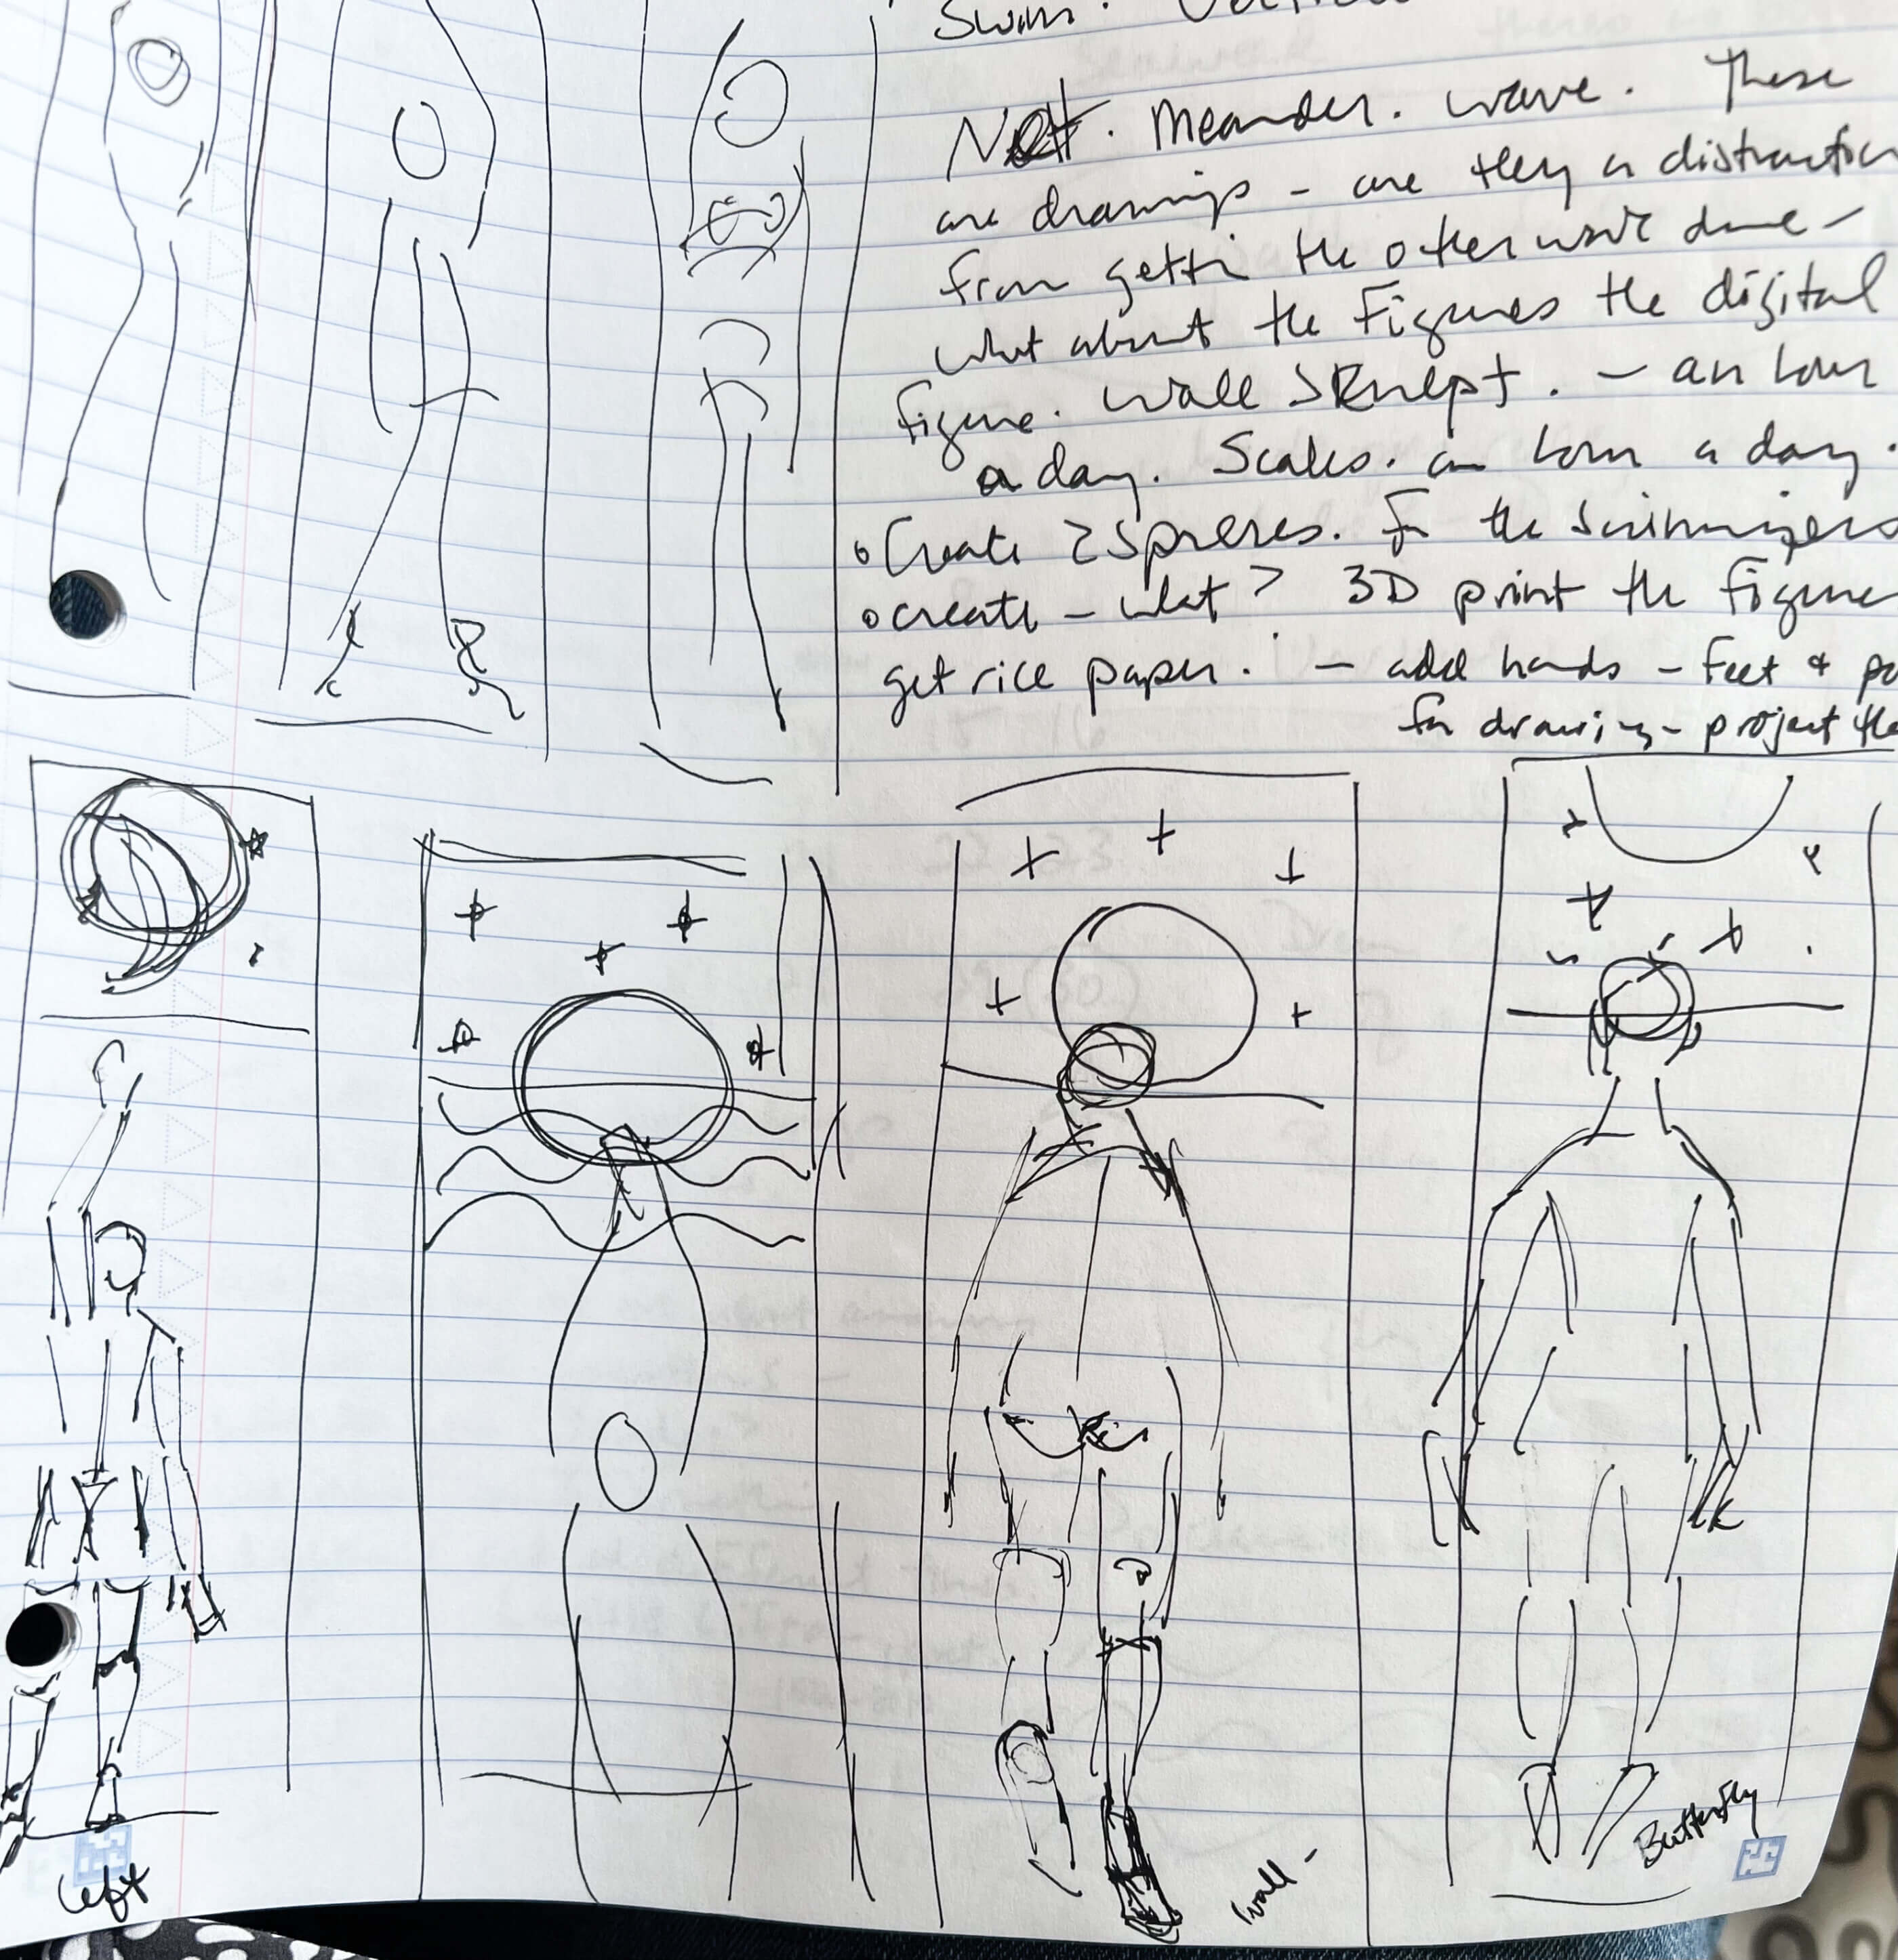 Swim.
Not. Meander. wave. These
are drawings - are they a distraction
From getti the other work done -
what about the Figures the digital
figure. Wall Skulpt. - an hour
a day. Scales. an hour a day.
Create 2 Spheres. For the
create - what? 3D print the Figure
get rice paper. - add hands - Feet &
for drawing - project the
left
wall -
Butterfly